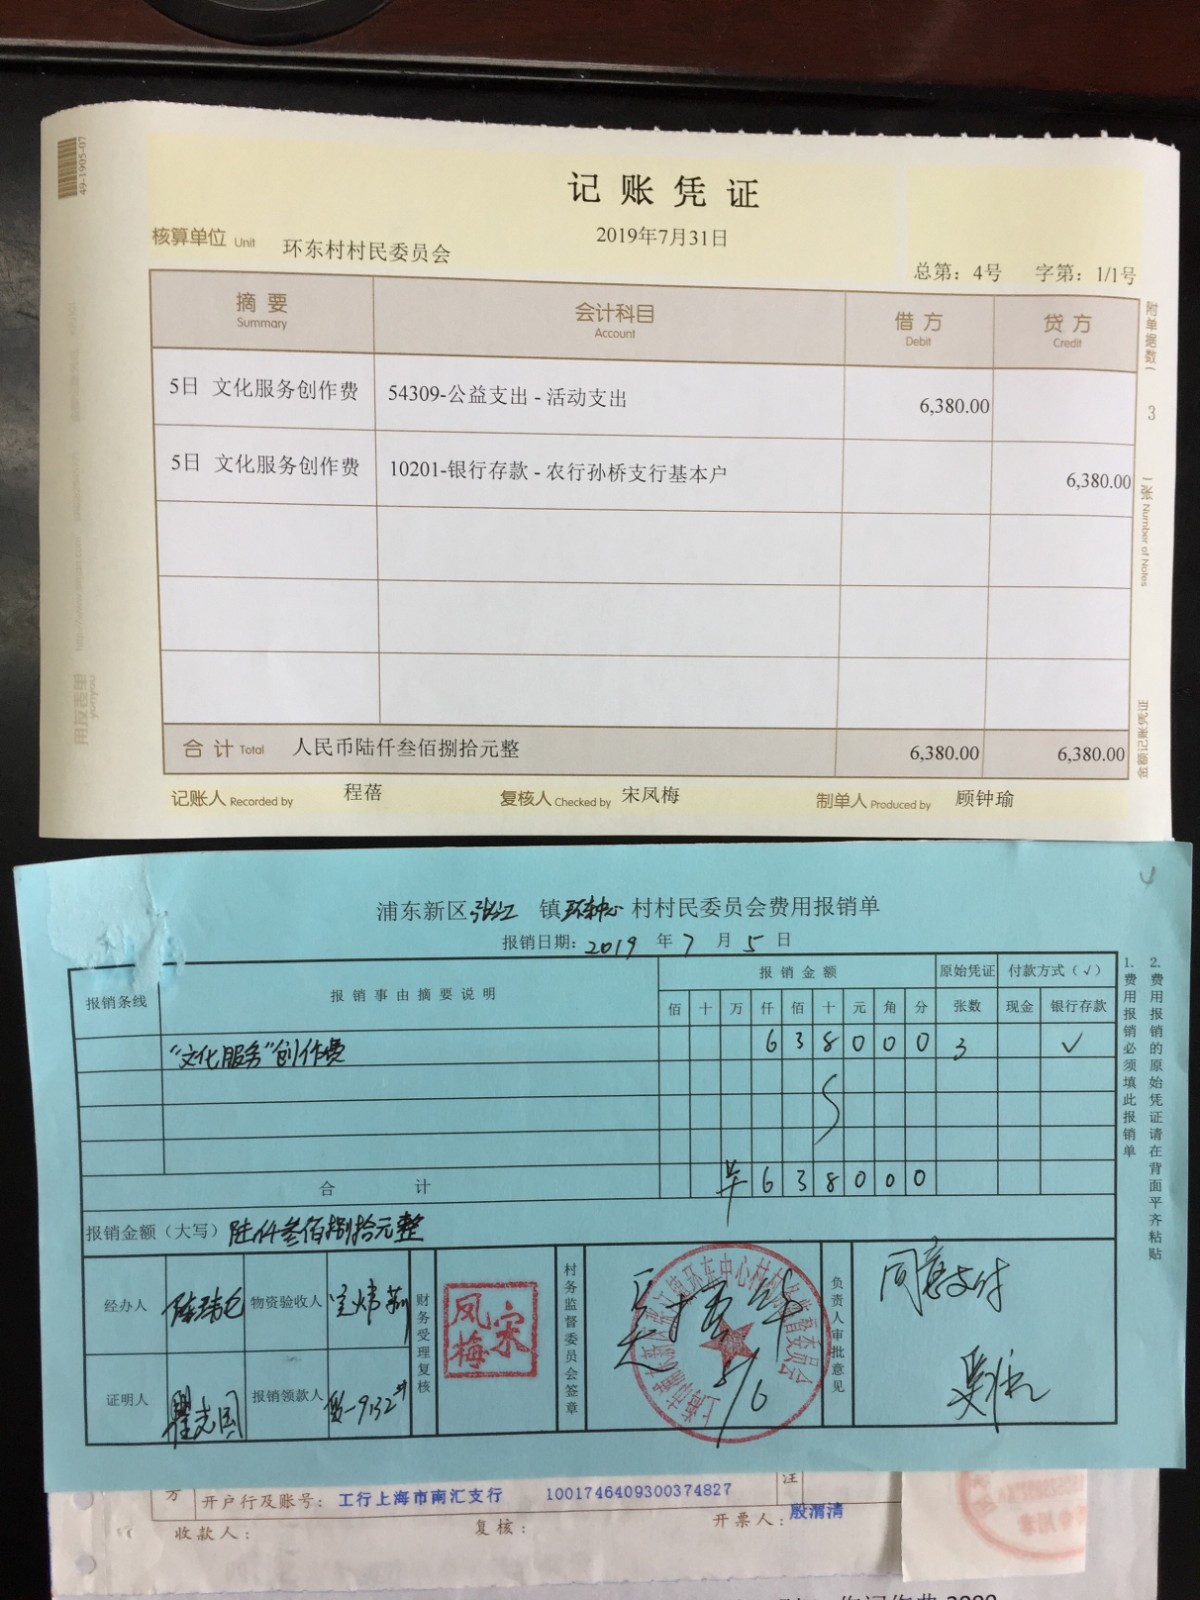 49-1905-07
记账凭证
2019年7月31日
核算单位 Unit 环东村村民委员会
总第：4号 字第：1/1号
摘要 会计科目 借方 贷方
Summary Account Debit Credit
5日 文化服务创作费 54309-公益支出 - 活动支出 6,380.00
5日 文化服务创作费 10201-银行存款 - 农行孙桥支行基本户 6,380.00
合计 Total 人民币陆仟叁佰捌拾元整 6,380.00 6,380.00
记账人 Recorded by 程蓓 复核人 Checked by 宋凤梅 制单人 Produced by 顾钟瑜
附单据数 3 张 Number of Notes
金额记账凭证
用友表单
yonyou
浦东新区张江 镇环东中心村村民委员会费用报销单
报销日期：2019 年 7 月 5 日
报销条线 报销事由摘要说明 报销金额 原始凭证 付款方式（√）
佰 十 万 仟 佰 十 元 角 分 张数 现金 银行存款
“文化服务”创作费 6 3 8 0 0 0 3 √
合计 ¥ 6 3 8 0 0 0
报销金额（大写）陆仟叁佰捌拾元整
经办人 物资验收人
证明人 瞿志国 报销领款人
财务受理复核
宋凤梅
村务监督委员会签章
负责人审批意见
同意支付
1.费用报销必须填此报销单
2.费用报销的原始凭证请在背面平齐粘贴
方 开户行及账号： 工行上海市南汇支行 1001746409300374827 注
收款人： 复核： 开票人：殷渭清